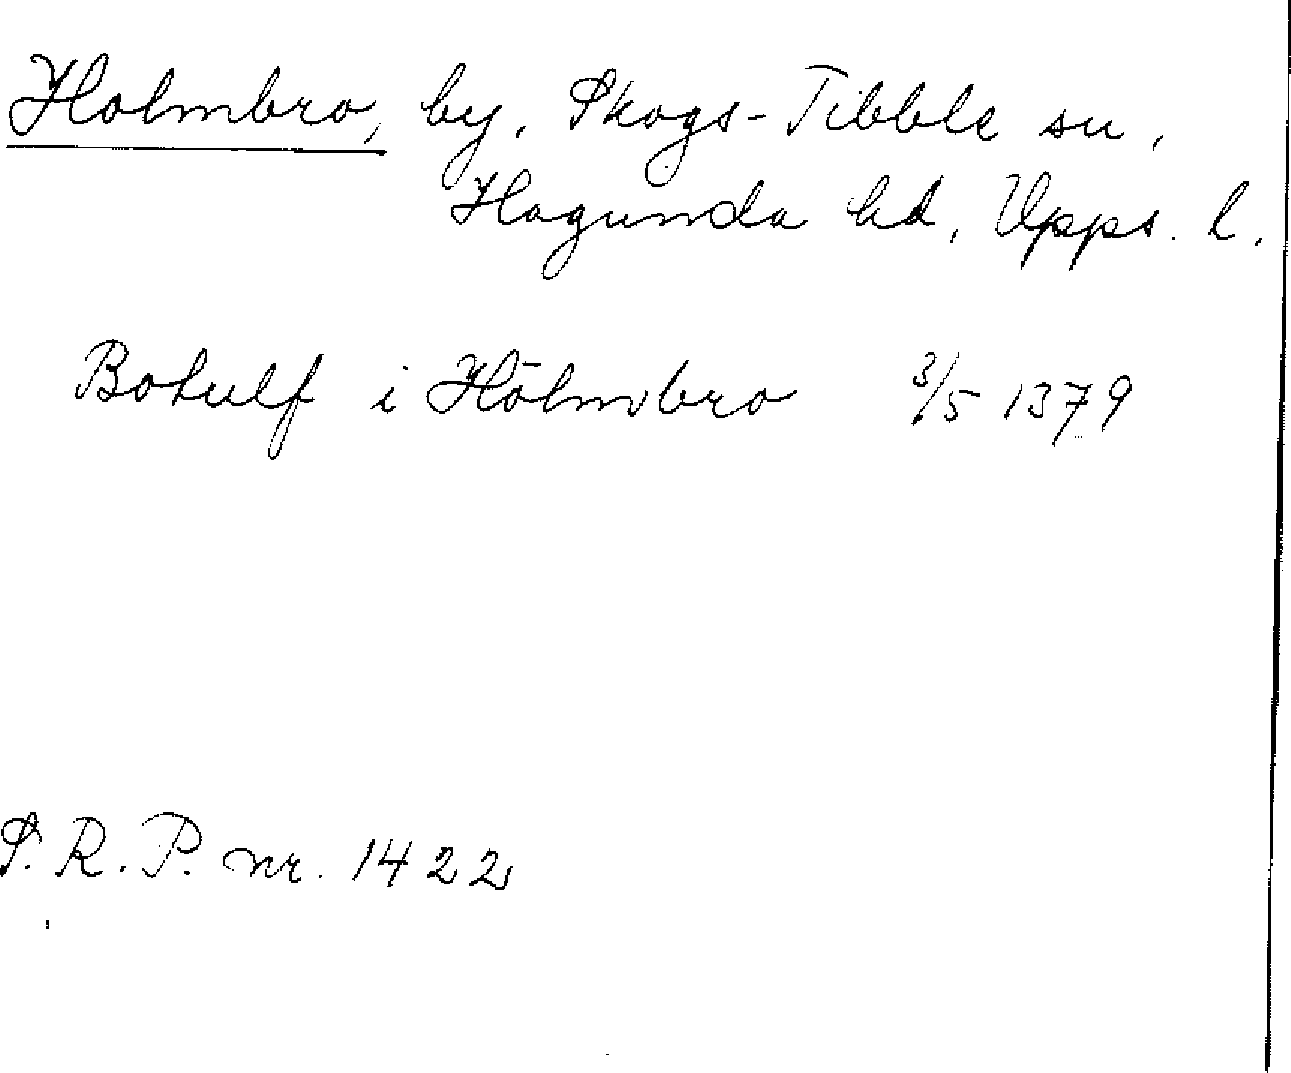 Holmbro, by, Skogs-Tibble sn,
Hagunda hd, Upps. l.
Botulf i Hölmbro 3/5 1379
S.R.P. nr. 1422